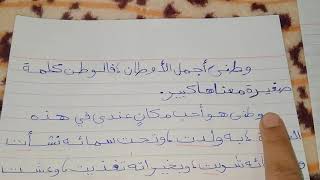 وطني أجمل الأوطان، فالوطن كلمة
صغيرة معناها كبير.
وطني هو أحب مكان عندي في هذه
به ولدت، وتحت سمائه نشأت
شربت، وبخيراته تغذيت، وعشت